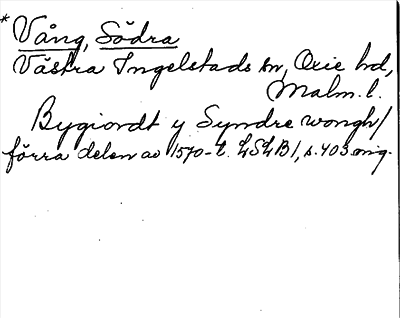 * Vång, Södra
Västra Ingelstads sn, Oxie hd,
Malm. l.
Bygiordt y Syndre wongh/
förra delen av 1570-t. LSLB1, s. 403 orig.